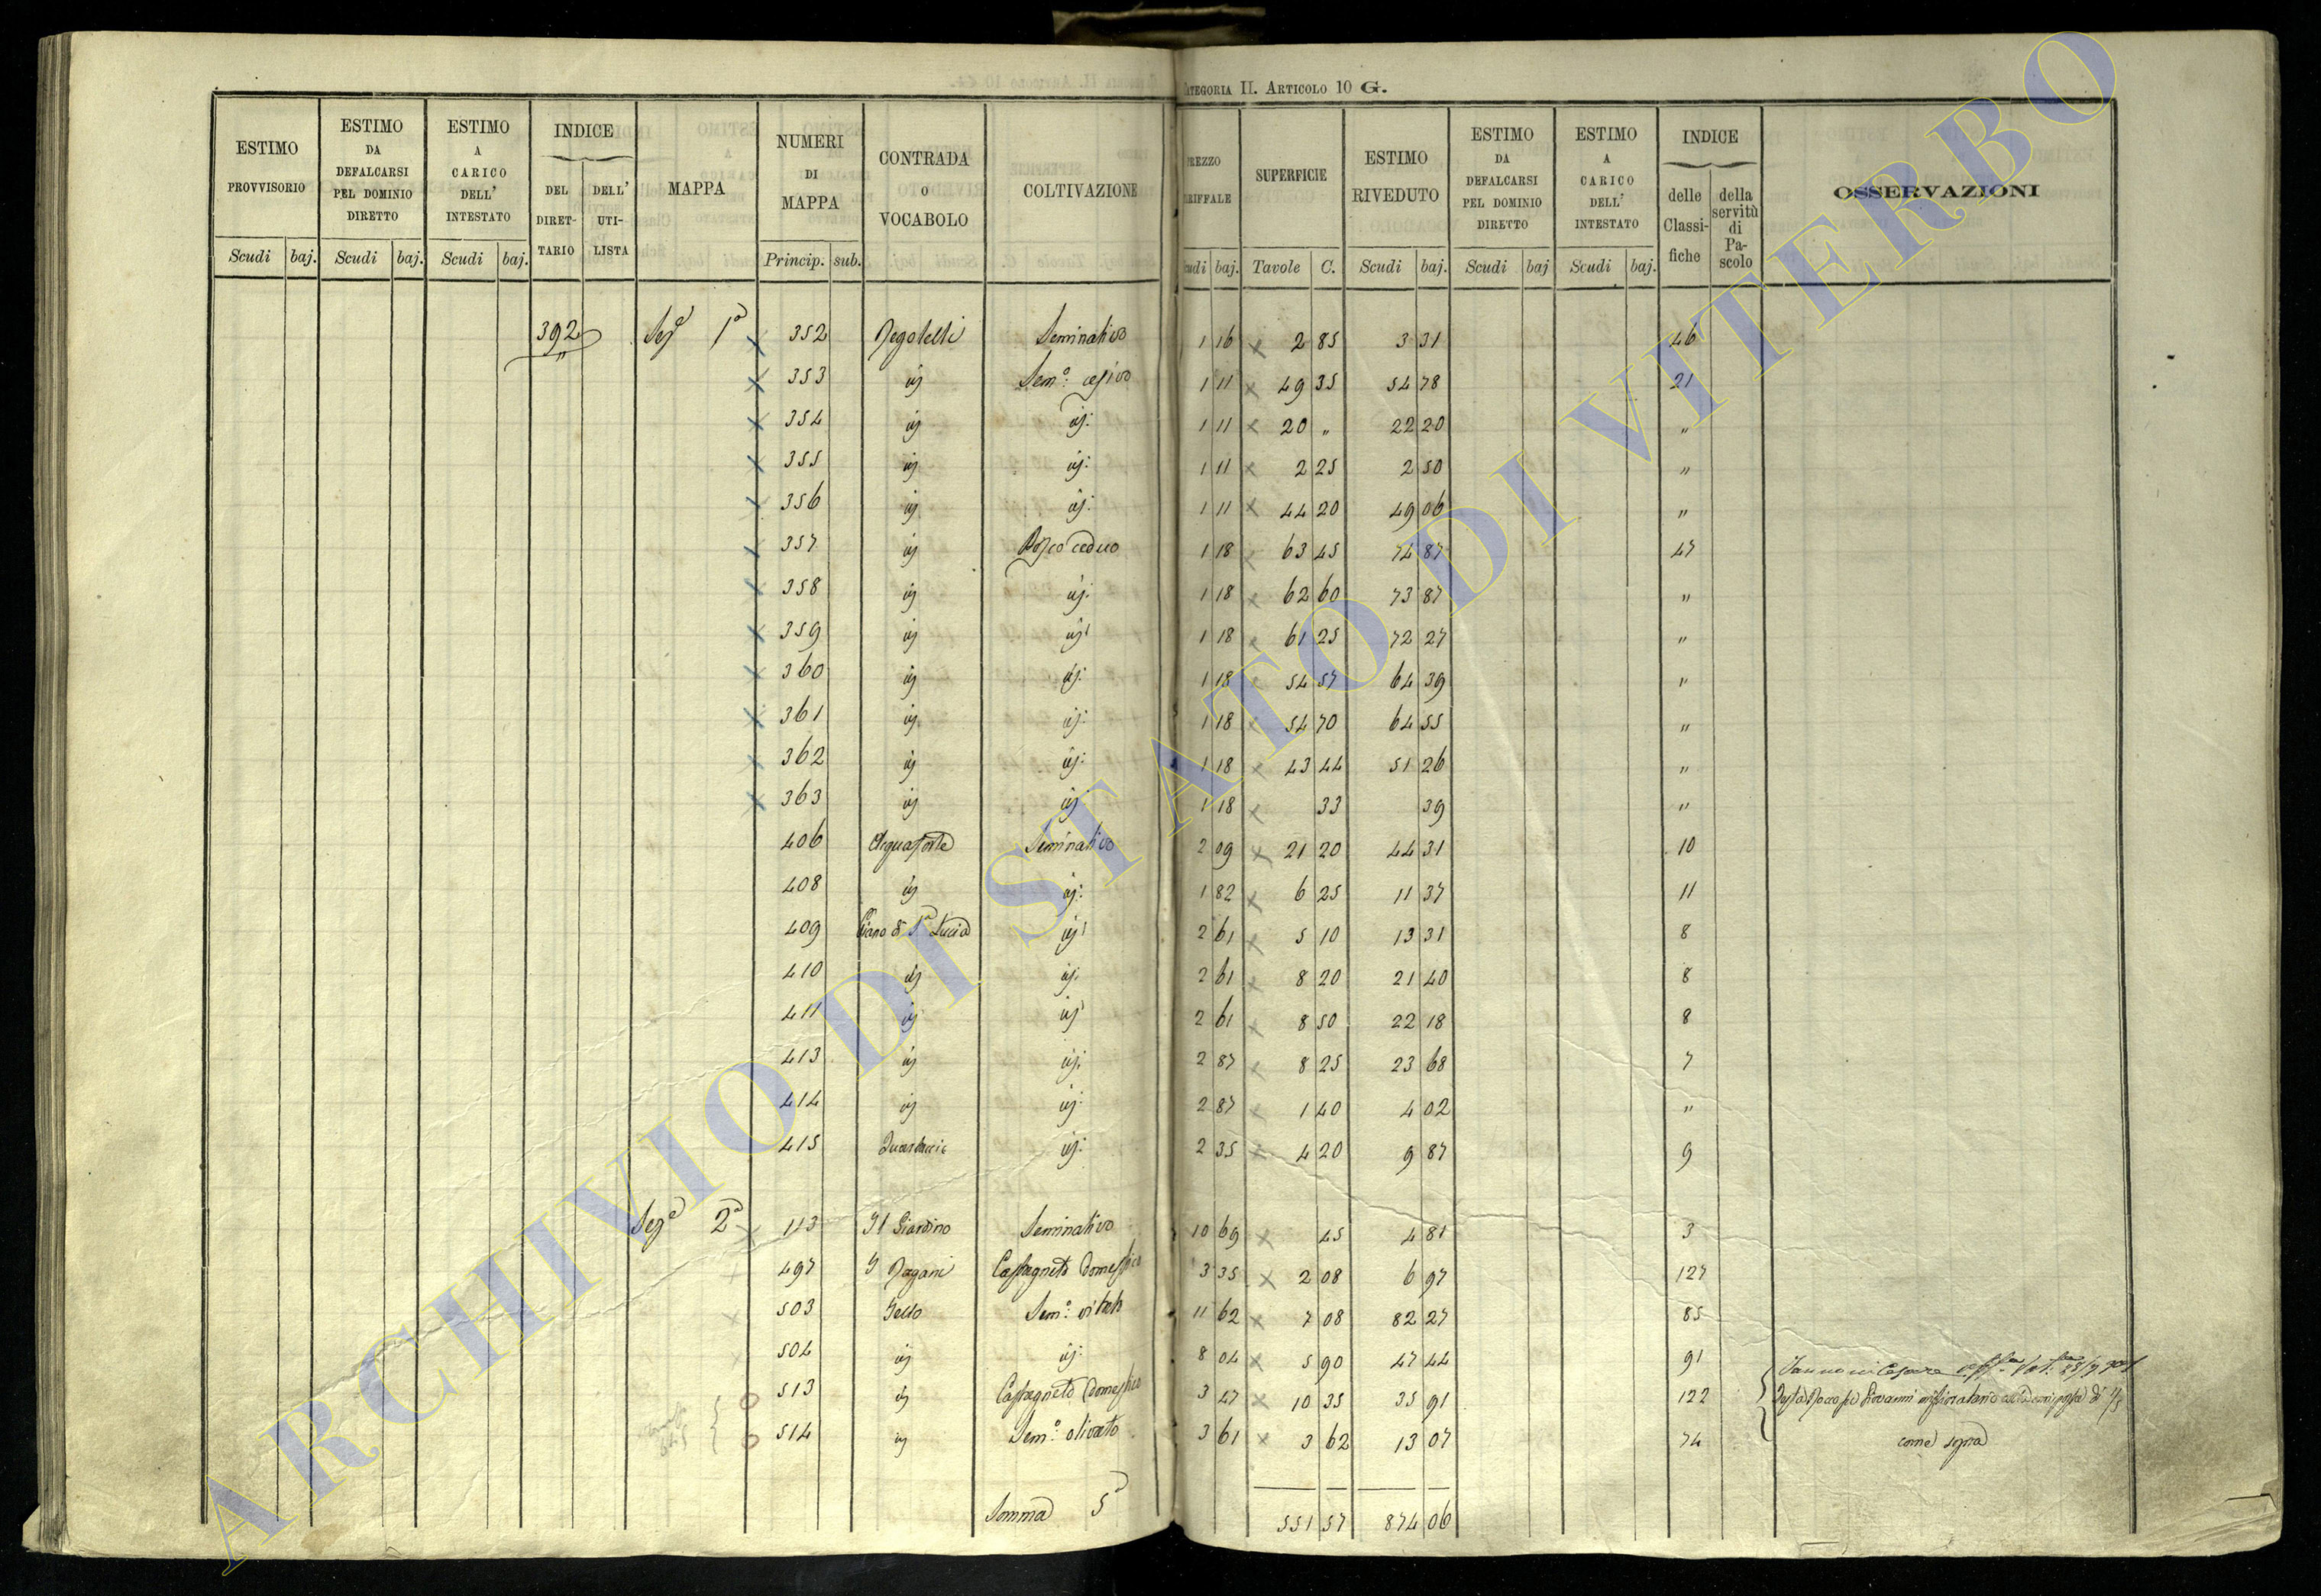 CATEGORIA II. ARTICOLO 10 G.
ESTIMO PROVVISORIO Scudi baj.
ESTIMO DA DEFALCARSI PEL DOMINIO DIRETTO Scudi baj.
ESTIMO A CARICO DELL' INTESTATO Scudi baj.
INDICE DEL DIRET-TARIO DELL' UTI-LISTA
MAPPA
NUMERI DI MAPPA Princip. sub.
CONTRADA O VOCABOLO
COLTIVAZIONE
PREZZO TARIFFALE Scudi baj.
SUPERFICIE Tavole C.
ESTIMO RIVEDUTO Scudi baj.
ESTIMO DA DEFALCARSI PEL DOMINIO DIRETTO Scudi baj
ESTIMO A CARICO DELL' INTESTATO Scudi baj.
INDICE delle Classi-fiche della servitù di Pa-scolo
OSSERVAZIONI
392 Sez.e 1a 352 Seminativo 1 16 2 85 3 31 46
353 id Sem.o cesivo 1 11 49 35 54 78 21
354 id id: 1 11 20 " 22 20 "
355 id id: 1 11 2 25 2 50 "
356 id id: 1 11 44 20 49 06 "
357 id Bosco ceduo 1 18 63 45 74 87 47
358 id id: 1 18 62 60 73 87 "
359 id id: 1 18 61 25 72 27 "
360 id id: 1 18 54 57 64 39 "
361 id id: 1 18 54 70 64 55 "
362 id id: 1 18 43 44 51 26 "
363 id id 1 18 33 39 "
406 Acquaforte Seminativo 2 09 21 20 44 31 10
408 id id: 1 82 6 25 11 37 11
409 Piano di S.a Lucia id: 2 61 5 10 13 31 8
410 id id: 2 61 8 20 21 40 8
411 id id: 2 61 8 50 22 18 8
413 id id: 2 87 8 25 23 68 7
414 id id: 2 87 1 40 4 02 "
415 id: 2 35 4 20 9 87 9
Sez.e 2a 113 Il Giardino Seminativo 10 69 45 4 81 3
497 Castagneto domestico 3 35 2 08 6 97 127
503 Sem.o vitato 11 62 7 08 82 27 85
504 id id: 8 04 5 90 47 44 91
513 id Castagneto domestico 3 47 10 35 35 91 122
514 id Sem.o olivato 3 61 3 62 13 07 74 come sopra
Somma 5a 551 57 874 06
ARCHIVIO DI STATO DI VITERBO